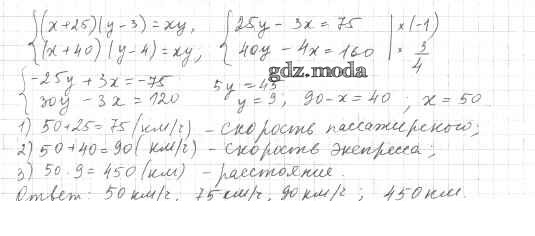 {(x+25)(y-3)=xy, {25y-3x=75 | ×(-1)
{(x+40)(y-4)=xy; {40y-4x=160 | × 3/4
gdz.moda
{-25y+3x=-75 5y=45
{30y-3x=120 y=9; 90-x=40; x=50
1) 50+25=75 (км/ч) - скорость пассажирского;
2) 50+40=90 (км/ч) - скорость экспресса;
3) 50·9=450 (км) - расстояние.
Ответ: 50км/ч, 75км/ч, 90км/ч; 450км.